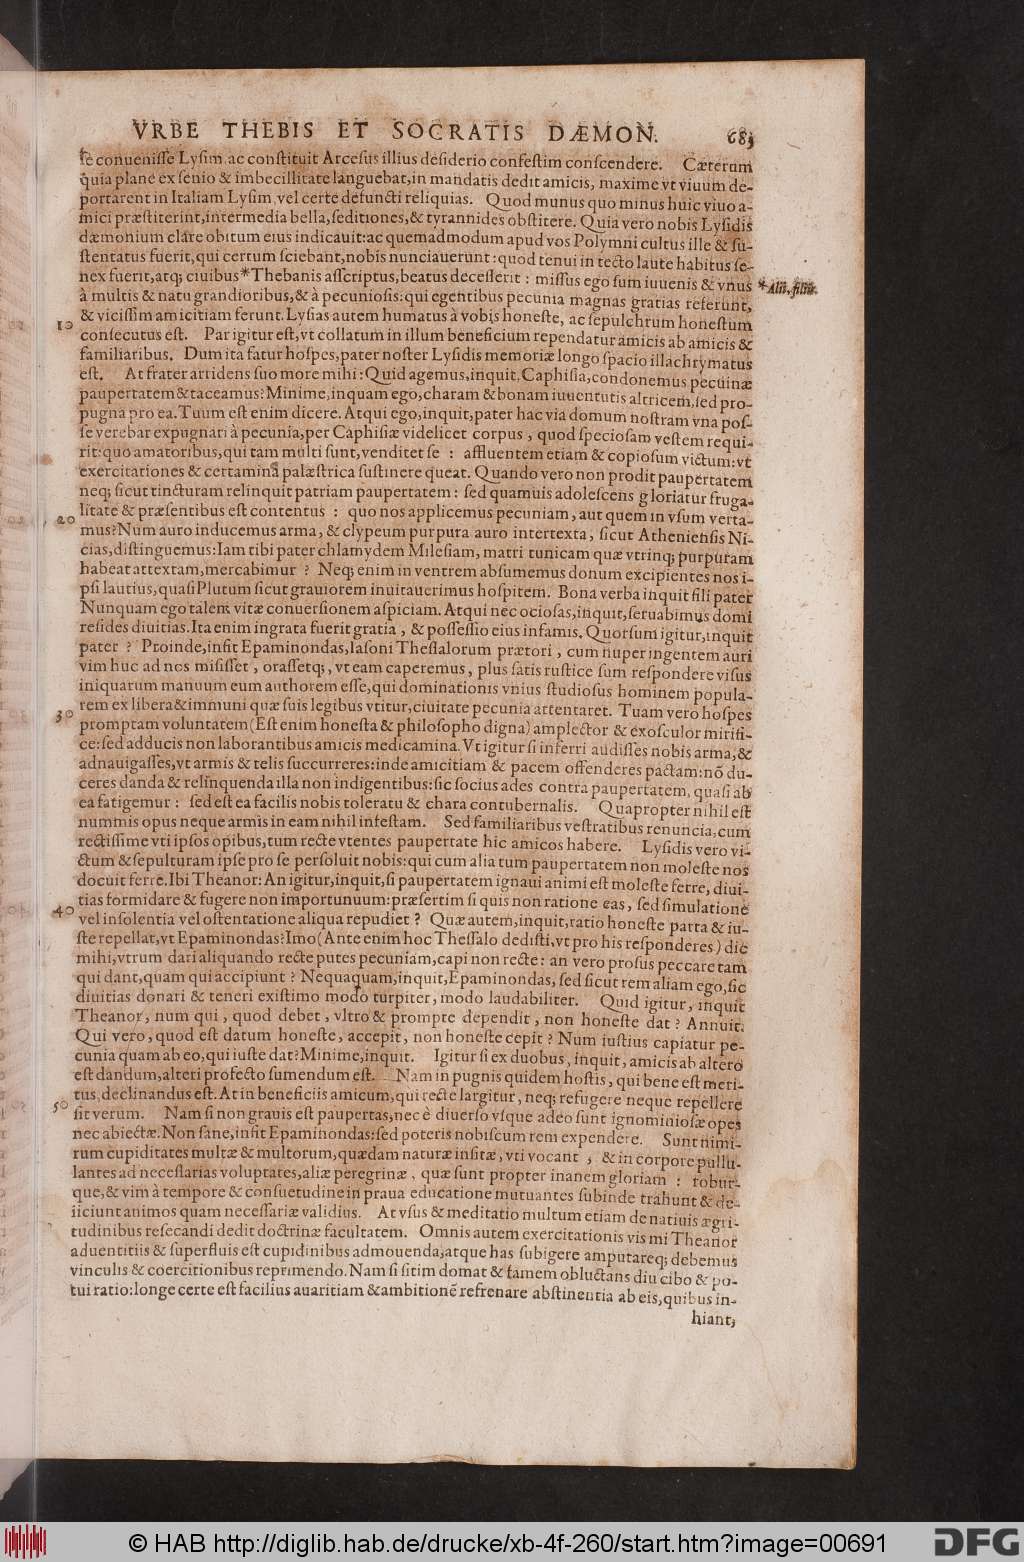 VRBE THEBIS ET SOCRATIS DÆMON. 683
ſe conueniſſe Lyſim, ac conſtituit Arceſus illius deſiderio confeſtim conſcendere. Cæterum
quia plane ex ſenio & imbecillitate languebat, in mandatis dedit amicis, maxime vt viuum de-
portarent in Italiam Lyſim, vel certe defuncti reliquias. Quod munus quo minus huic viuo a-
mici præſtiterint, intermedia bella, ſeditiones, & tyrannides obſtitere. Quia vero nobis Lyſidis
dæmonium clare obitum eius indicauit: ac quemadmodum apud vos Polymni cultus ille & ſu-
ſtentatus fuerit, qui certum ſciebant, nobis nunciauerunt: quod tenui in tecto laute habitus ſe-
nex fuerit, atq; ciuibus* Thebanis aſſcriptus, beatus deceſſerit: miſſus ego ſum iuuenis & vnus
*Alii, filiis.
à multis & natu grandioribus, & à pecunioſis: qui egentibus pecunia magnas gratias referunt,
& viciſſim amicitiam ferunt. Lyſias autem humatus à vobis honeſte, ac ſepulchrum honeſtum
10 conſecutus eſt. Par igitur eſt, vt collatum in illum beneficium rependatur amicis ab amicis &
familiaribus. Dum ita fatur hoſpes, pater noſter Lyſidis memoriæ longo ſpacio illachrymatus
eſt. At frater arridens ſuo more mihi: Quid agemus, inquit, Caphiſia, condonemus pecuinæ
paupertatem & taceamus? Minime, inquam ego, charam & bonam iuuentutis altricem, ſed pro-
pugna pro ea. Tuum eſt enim dicere. Atqui ego, inquit, pater hac via domum noſtram vna poſ-
ſe verebar expugnari à pecunia, per Caphiſiæ videlicet corpus, quod ſpecioſam veſtem requi-
rit: quo amatoribus, qui tam multi ſunt, venditet ſe: affluentem etiam & copioſum victum: vt
exercitationes & certamina palæſtrica ſuſtinere queat. Quando vero non prodit paupertatem
neq; ſicut tincturam relinquit patriam paupertatem: ſed quamuis adoleſcens gloriatur fruga-
litate & præſentibus eſt contentus: quo nos applicemus pecuniam, aut quem in vſum verta-
20 mus? Num auro inducemus arma, & clypeum purpura auro intertexta, ſicut Athenienſis Ni-
cias, diſtinguemus: Iam tibi pater chlamydem Mileſiam, matri tunicam quæ vtrinq; purpuram
habeat attextam, mercabimur? Neq; enim in ventrem abſumemus donum excipientes nos i-
pſi lautius, quaſi Plutum ſicut grauiorem inuitauerimus hoſpitem. Bona verba inquit fili pater
Nunquam ego talem vitæ conuerſionem aſpiciam. Atqui nec ocioſas, inquit, ſeruabimus domi
reſides diuitias. Ita enim ingrata fuerit gratia, & poſſeſſio eius infamis. Quorſum igitur, inquit
pater? Proinde, inſit Epaminondas, Iaſoni Theſſalorum prætori, cum nuper ingentem auri
vim huc ad nos miſiſſet, oraſſetq;, vt eam caperemus, plus ſatis ruſtice ſum reſpondere viſus
iniquarum manuum eum authorem eſſe, qui dominationis vnius ſtudioſus hominem popula-
rem ex libera & immuni quæ ſuis legibus vtitur, ciuitate pecunia attentaret. Tuam vero hoſpes
30 promptam voluntatem (Eſt enim honeſta & philoſopho digna) amplector & exoſculor mirifi-
ce: ſed adducis non laborantibus amicis medicamina. Vt igitur ſi inferri audiſſes nobis arma, &
adnauigaſſes, vt armis & telis ſuccurreres: inde amicitiam & pacem offenderes pactam: nõ du-
ceres danda & relinquenda illa non indigentibus: ſic ſocius ades contra paupertatem, quaſi ab
ea fatigemur: ſed eſt ea facilis nobis toleratu & chara contubernalis. Quapropter nihil eſt
nummis opus neque armis in eam nihil infeſtam. Sed familiaribus veſtratibus renuncia, cum
rectiſſime vti ipſos opibus, tum recte vtentes paupertate hic amicos habere. Lyſidis vero vi-
ctum & ſepulturam ipſe pro ſe perſoluit nobis: qui cum alia tum paupertatem non moleſte nos
docuit ferre. Ibi Theanor: An igitur, inquit, ſi paupertatem ignaui animi eſt moleſte ferre, diui-
tias formidare & fugere non importunuum: præſertim ſi quis non ratione eas, ſed ſimulatione
40 vel inſolentia vel oſtentatione aliqua repudiet? Quæ autem, inquit, ratio honeſte parta & iu-
ſte repellat, vt Epaminondas? Imo (Ante enim hoc Theſſalo dediſti, vt pro his reſponderes) dic
mihi, vtrum dari aliquando recte putes pecuniam, capi non recte: an vero proſus peccare tam
qui dant, quam qui accipiunt? Nequaquam, inquit, Epaminondas, ſed ſicut rem aliam ego, ſic
diuitias donari & teneri exiſtimo modo turpiter, modo laudabiliter. Quid igitur, inquit
Theanor, num qui, quod debet, vltro & prompte dependit, non honeſte dat? Annuit.
Qui vero, quod eſt datum honeſte, accepit, non honeſte cepit? Num iuſtius capiatur pe-
cunia quam ab eo, qui iuſte dat? Minime, inquit. Igitur ſi ex duobus, inquit, amicis ab altero
eſt dandum, alteri profecto ſumendum eſt. Nam in pugnis quidem hoſtis, qui bene eſt meri-
tus, declinandus eſt. At in beneficiis amicum, qui recte largitur, neq; refugere neque repellere
50 ſit verum. Nam ſi non grauis eſt paupertas, nec è diuerſo vſque adeo ſunt ignominioſæ opes
nec abiectæ. Non ſane, inſit Epaminondas: ſed poteris nobiſcum rem expendere. Sunt nimi-
rum cupiditates multæ & multorum, quædam naturæ inſitæ, vti vocant, & in corpore pullu-
lantes ad neceſſarias voluptates, aliæ peregrinæ, quæ ſunt propter inanem gloriam: robur-
que, & vim à tempore & conſuetudine in praua educatione mutuantes ſubinde trahunt & de-
iiciunt animos quam neceſſariæ validius. At vſus & meditatio multum etiam de natiuis ægri-
tudinibus reſecandi dedit doctrinæ facultatem. Omnis autem exercitationis vis mi Theanor
aduentitiis & ſuperfluis eſt cupidinibus admouenda, atque has ſubigere amputareq; debemus
vinculis & coercitionibus reprimendo. Nam ſi ſitim domat & famem obluctans diu cibo & po-
tui ratio: longe certe eſt facilius auaritiam & ambitionẽ refrenare abſtinentia ab eis, quibus in-
hiant;
© HAB http://diglib.hab.de/drucke/xb-4f-260/start.htm?image=00691
DFG